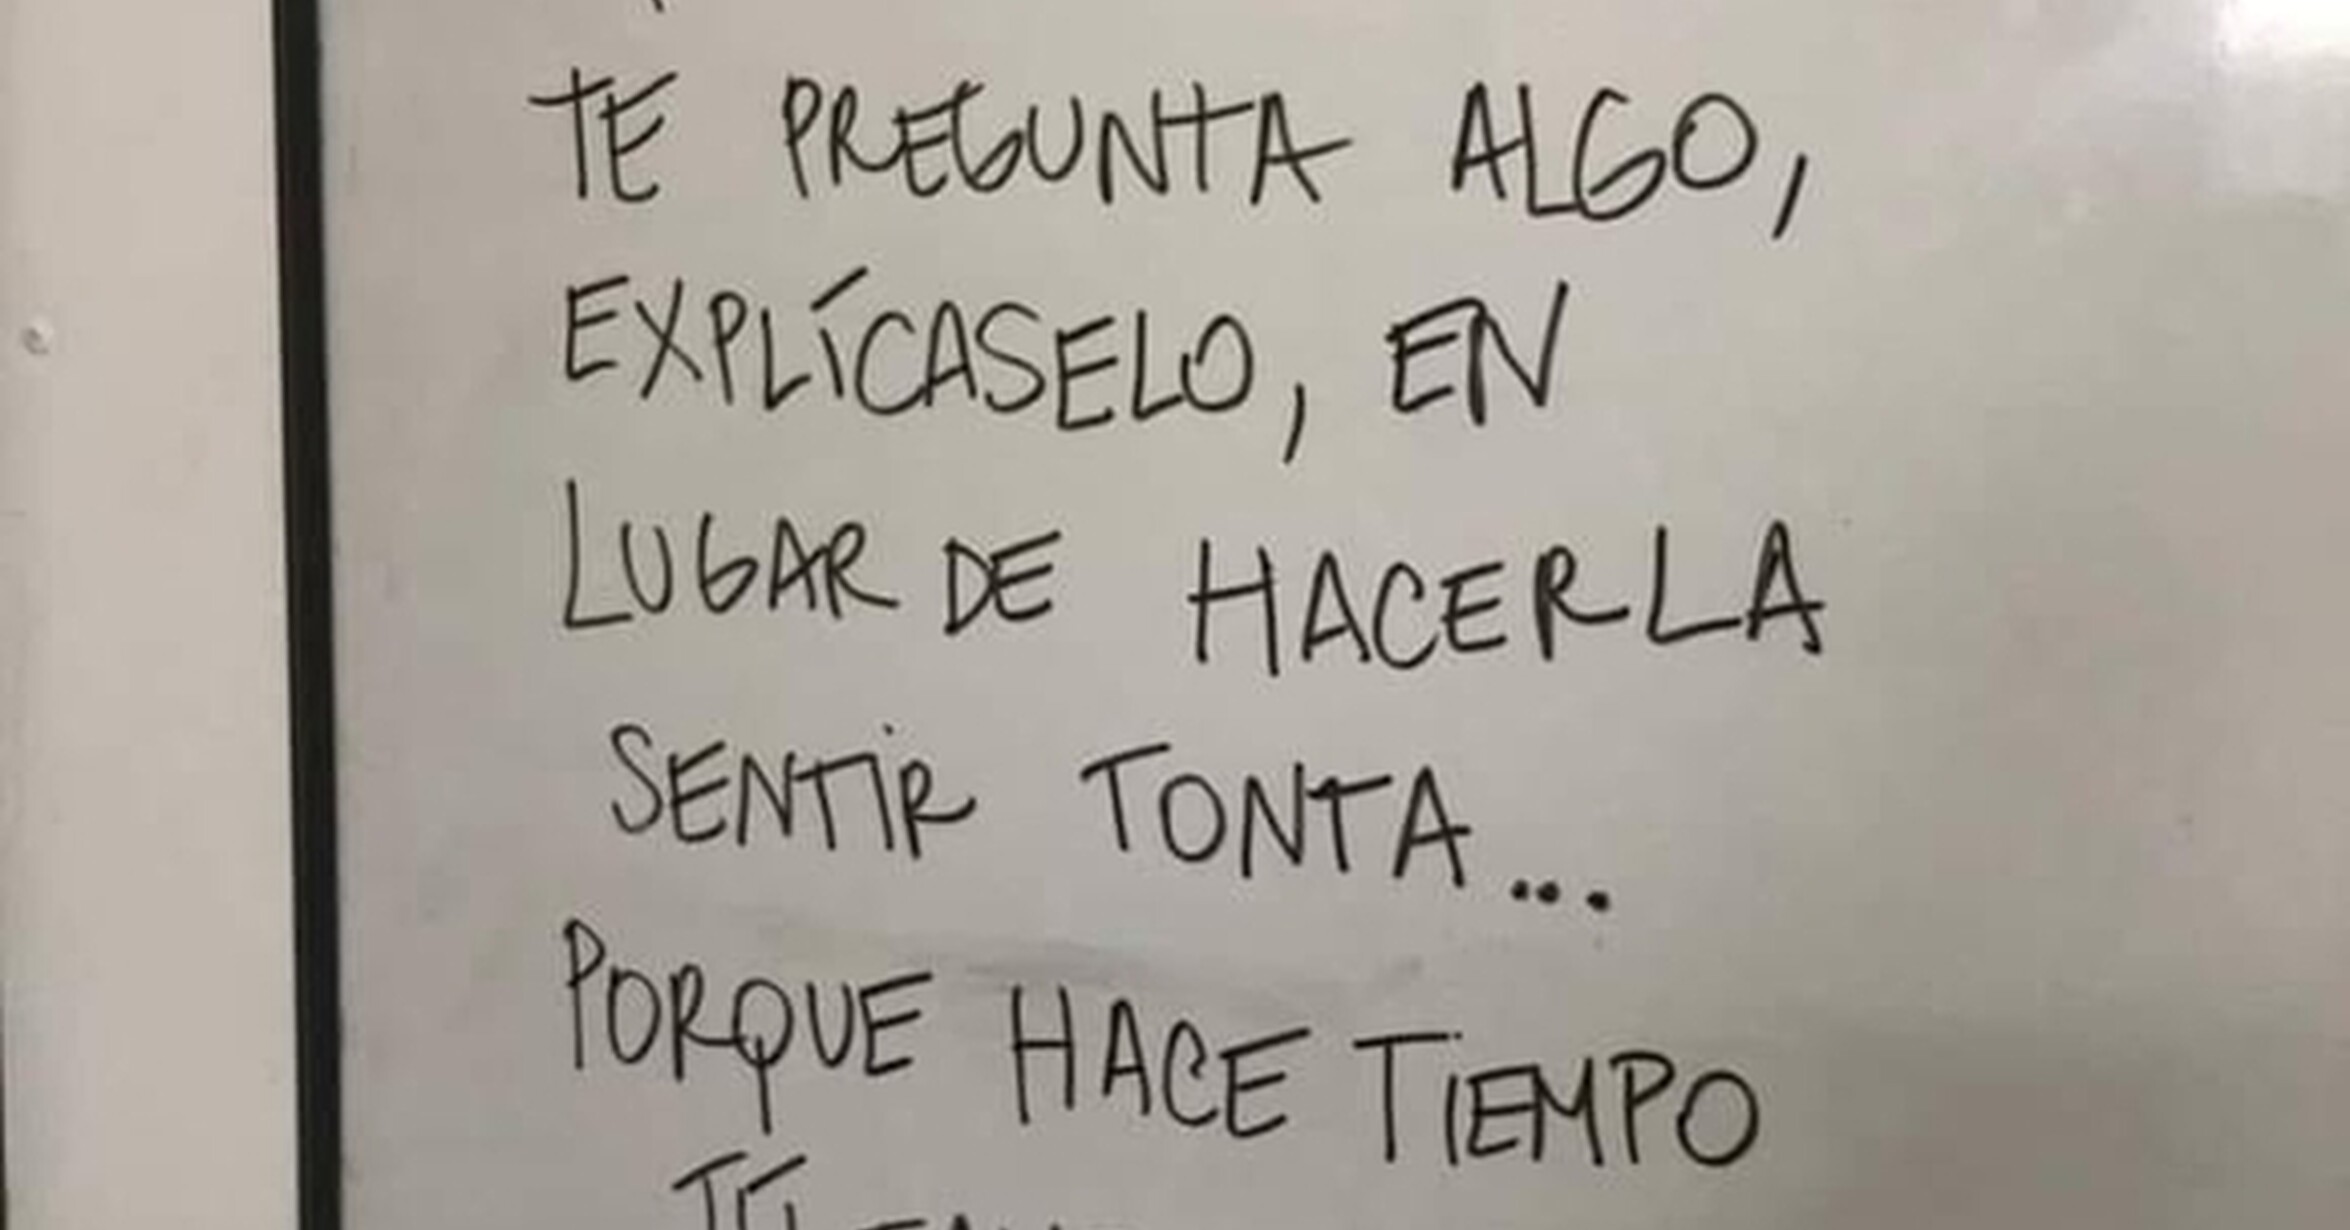 TE PREGUNTA ALGO,
EXPLÍCASELO, EN
LUGAR DE HACERLA
SENTIR TONTA...
PORQUE HACE TIEMPO
TÚ